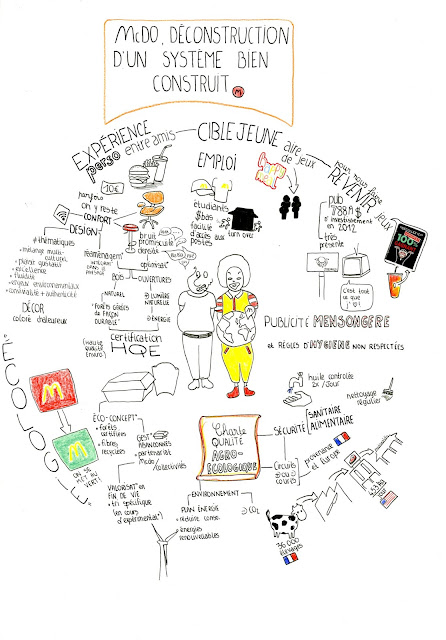 McDO, DÉCONSTRUCTION
D'UN SYSTÈME BIEN
CONSTRUIT.
M
EXPÉRIENCE
perso
entre amis
10€
parfois
on y reste
CONFORT
DESIGN
bruit
promiscuité
densité
réaménagem^t
optimisat°
4 thématiques
• mélange multi-
culturel
• plaisir gustatif
• excellence
• fluidité
• enjeux environnementaux
• convivialité + authenticité
DÉCOR
coloré chaleureux
BOIS
OUVERTURES
NATUREL
LUMIÈRE
NATURELLE
ÉNERGIE
"Forêts gérées
de FAÇON
DURABLE"
certification
HQE
(haute qualité
enviro)
CIBLE JEUNE
EMPLOI
étudiants
$ bas
facilité
d'accès aux
postes
turn over
aire
de jeux
pour nous faire
REVENIR
jeux
100%
PUB
788 M $
d'investissement
en 2012
très
présente
c'est tout
ce que
j'
PUBLICITÉ MENSONGÈRE
et RÈGLES D'HYGIÈNE NON RESPECTÉES
ÉCOLOGIE
M
M
ON SE
MET AU
VERT!
ÉCO-CONCEPT°
• forêts
certifiées
• fibres
recyclées
GEST°
ABANDONNÉS
• partenariat
McDo/collectivités
VALORISAT° en
FIN DE VIE
• tri spécifique
(en cours
d'expérimentat°)
Charte
QUALITÉ
AGRO-
ÉCOLOGIQUE
ENVIRONNEMENT
PLAN ÉNERGIE
• réduire conso.
• énergies
renouvelables
CO₂
huile contrôlée
2x/jour
nettoyage
régulier
SÉCURITÉ
SANITAIRE
ALIMENTAIRE
Circuits
courts
France
et Europe
36 000
Élevages